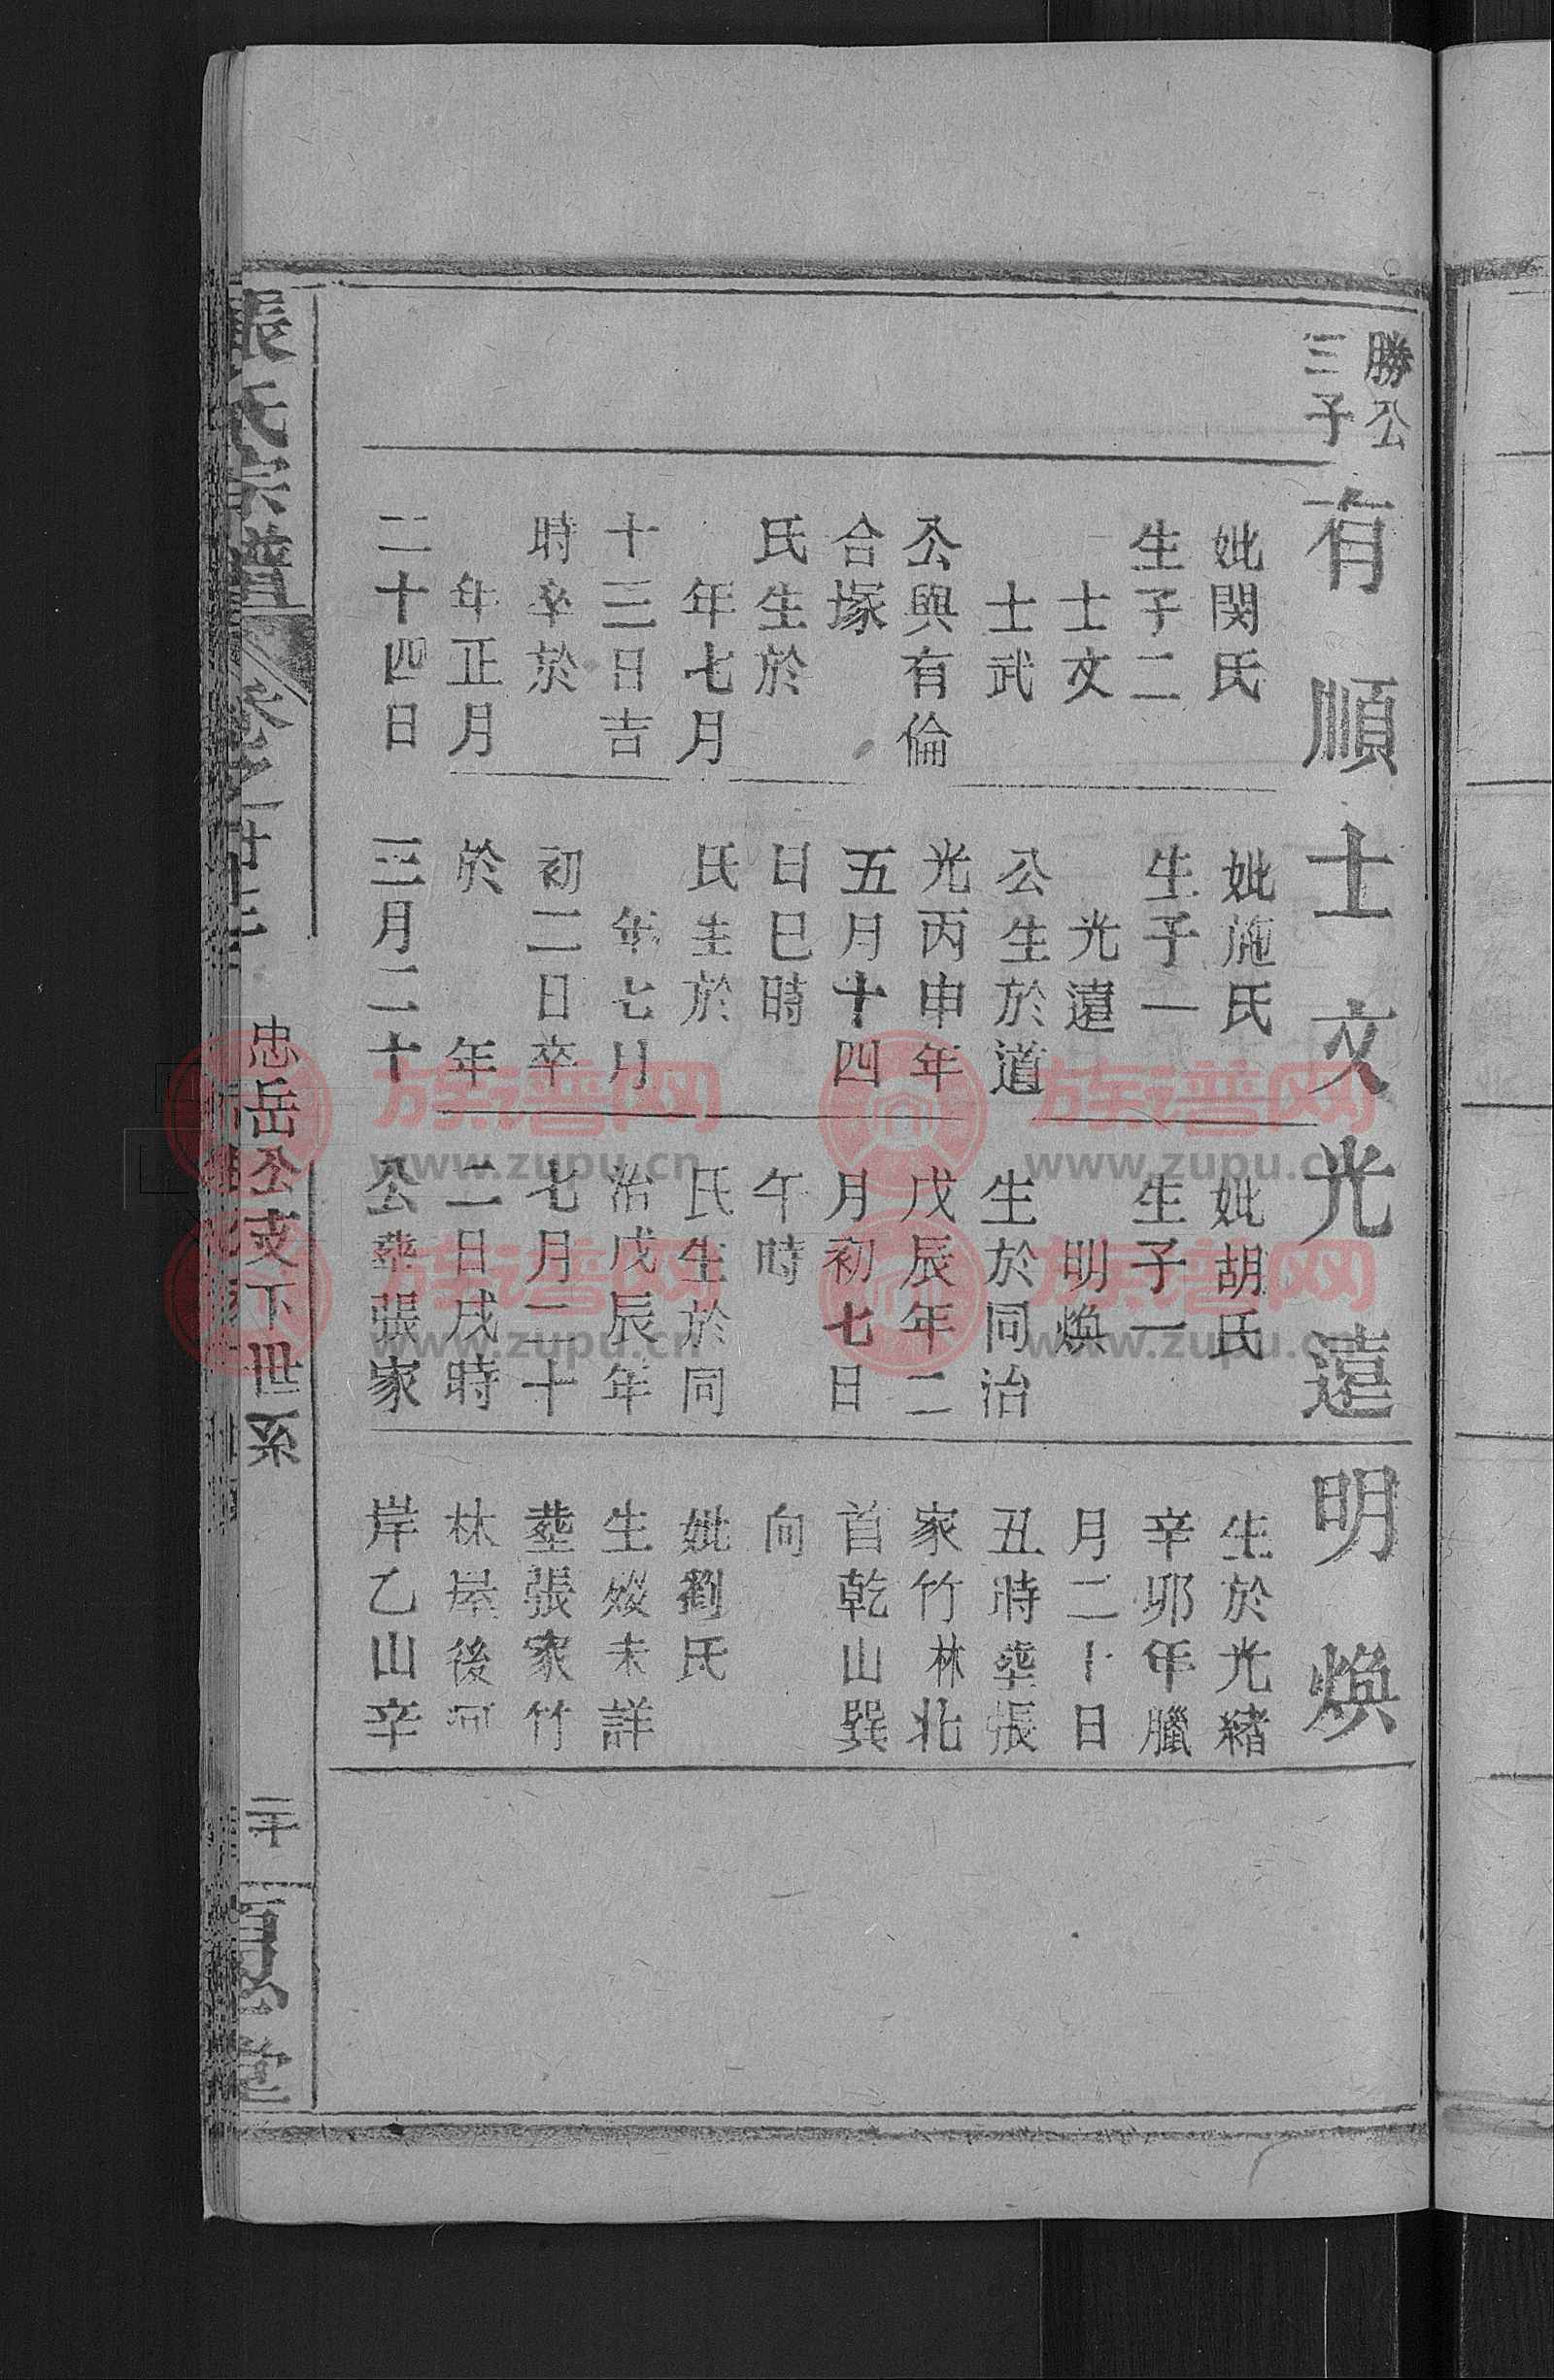 勝公
三子
有順
妣閔氏
生子二
士文
士武
公與有倫
合塚
氏生於
年七月
十三日吉
時卒於
年正月
二十四日
士文
妣施氏
生子一
光遠
公生於道
光丙申年
五月十四
日巳時
氏生於
年七月
初二日卒
於年
三月二十
光遠
妣胡氏
生子一
明煥
生於同治
戊辰年二
月初七日
午時
氏生於同
治戊辰年
七月二十
二日戌時
公葬張家
明煥
生於光緒
辛卯年臘
月二十日
丑時葬張
家竹林北
首乾山巽
向
妣劉氏
生歿未詳
葬張家竹
林屋後河
岸乙山辛
張氏宗譜
卷之
忠岳公支下世系
三十
堂
族谱网
www.zupu.cn
族谱网
www.zupu.cn
族谱网
www.zupu.cn
族谱网
www.zupu.cn